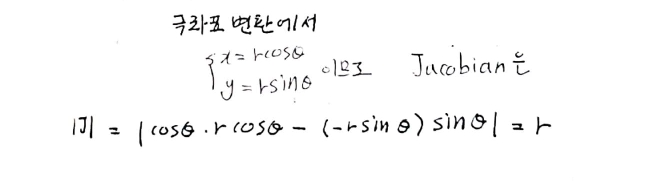 극좌표 변환에서
{ x = rcosθ
y = rsinθ 이므로 Jacobian은
|J| = | cosθ · r cosθ - (-r sin θ) sin θ | = r